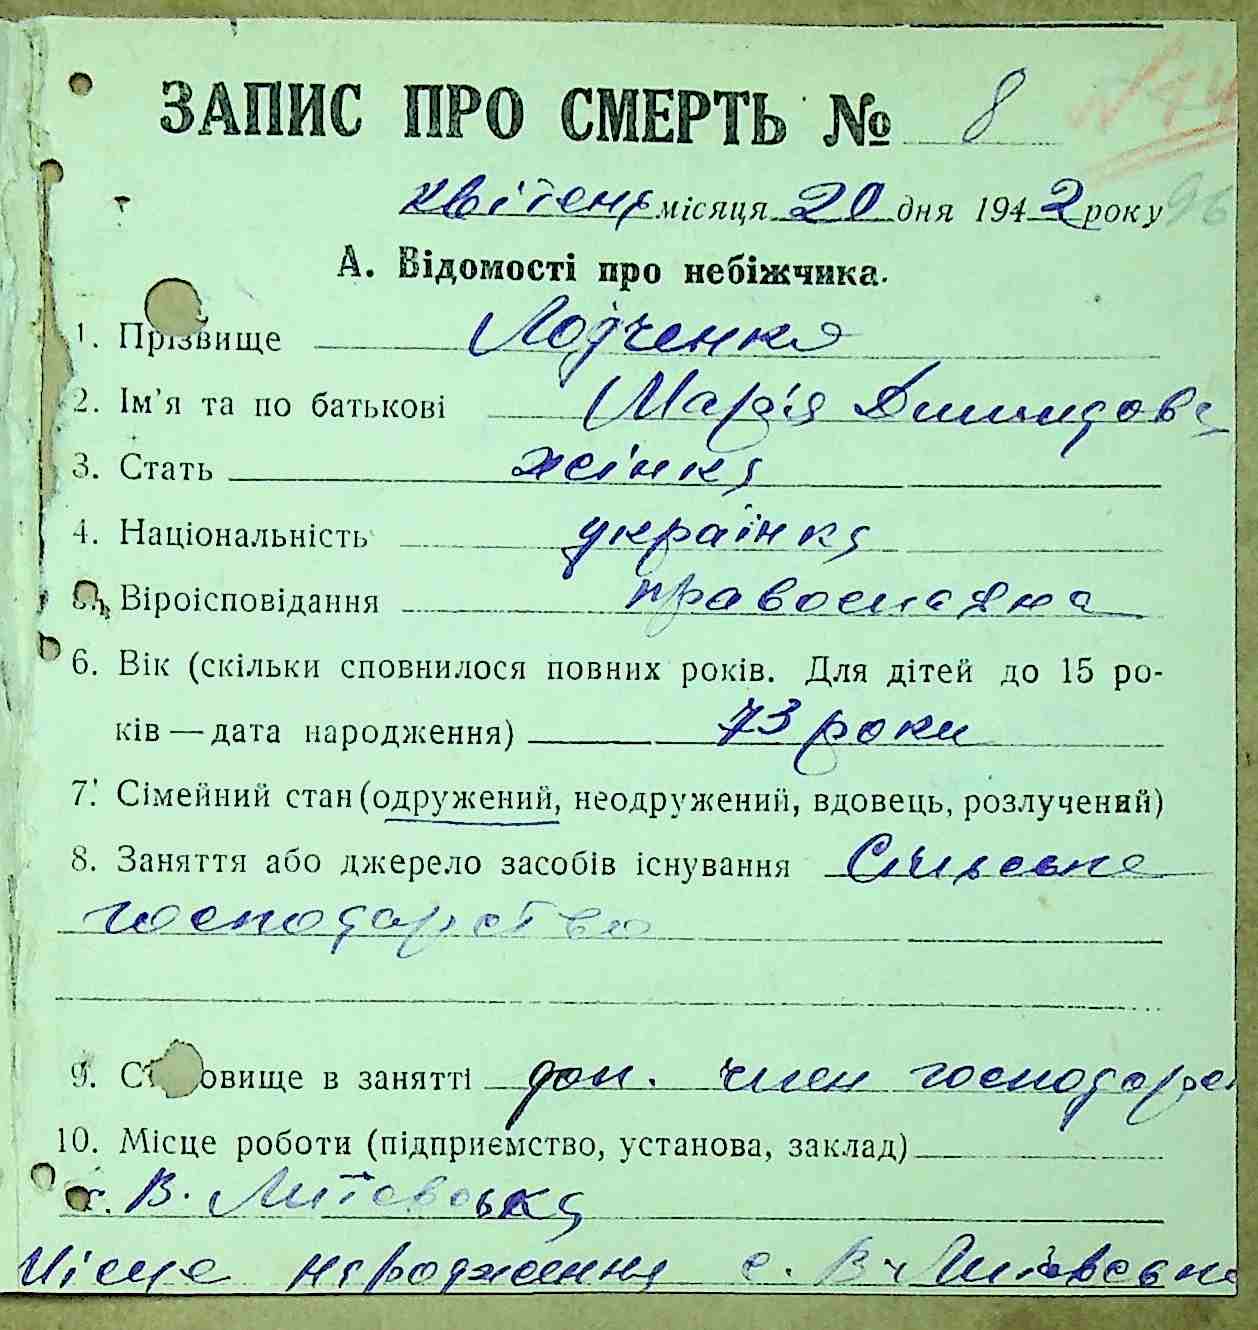 ЗАПИС ПРО СМЕРТЬ № 8
квітень місяця 20 дня 1942 року 96
А. Відомості про небіжчика.
1. Прізвище Лодченко
2. Ім'я та по батькові Марія
3. Стать жінка
4. Національність українка
Віроісповідання православна
6. Вік (скільки сповнилося повних років. Для дітей до 15 ро-
ків — дата народження) 73 роки
7. Сімейний стан (одружений, неодружений, вдовець, розлучений)
8. Заняття або джерело засобів існування Сільське
господарство
9. Становище в занятті доп. член господар
10. Місце роботи (підприємство, установа, заклад)
с. В. Литовська
Місце народження с. В. Литовська